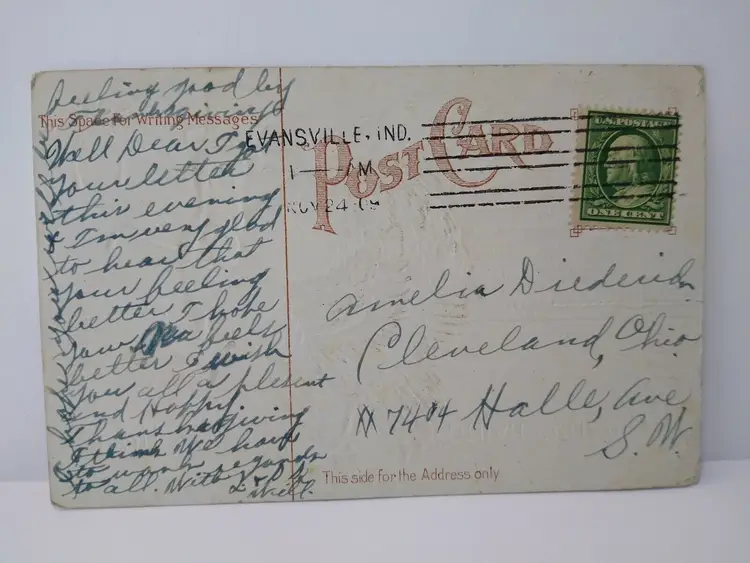 feeling good by
Thanksgiving
This Space for Writing Messages
Well Dear I got
your letter
this evening
& I'm very glad
to hear that
your feeling
better I hope
your Ma feels
better I wish
you all a plesent
and Happy
Thanksgiving
I think We have
to work regards
to all. With L & K
Will.
POST CARD
EVANSVILLE, IND.
1 - M
NOV 24 09
U.S. POSTAGE
ONE CENT
Amelia Diederich
Cleveland, Ohio
# 7404 Halle, Ave
S. W.
This side for the Address only